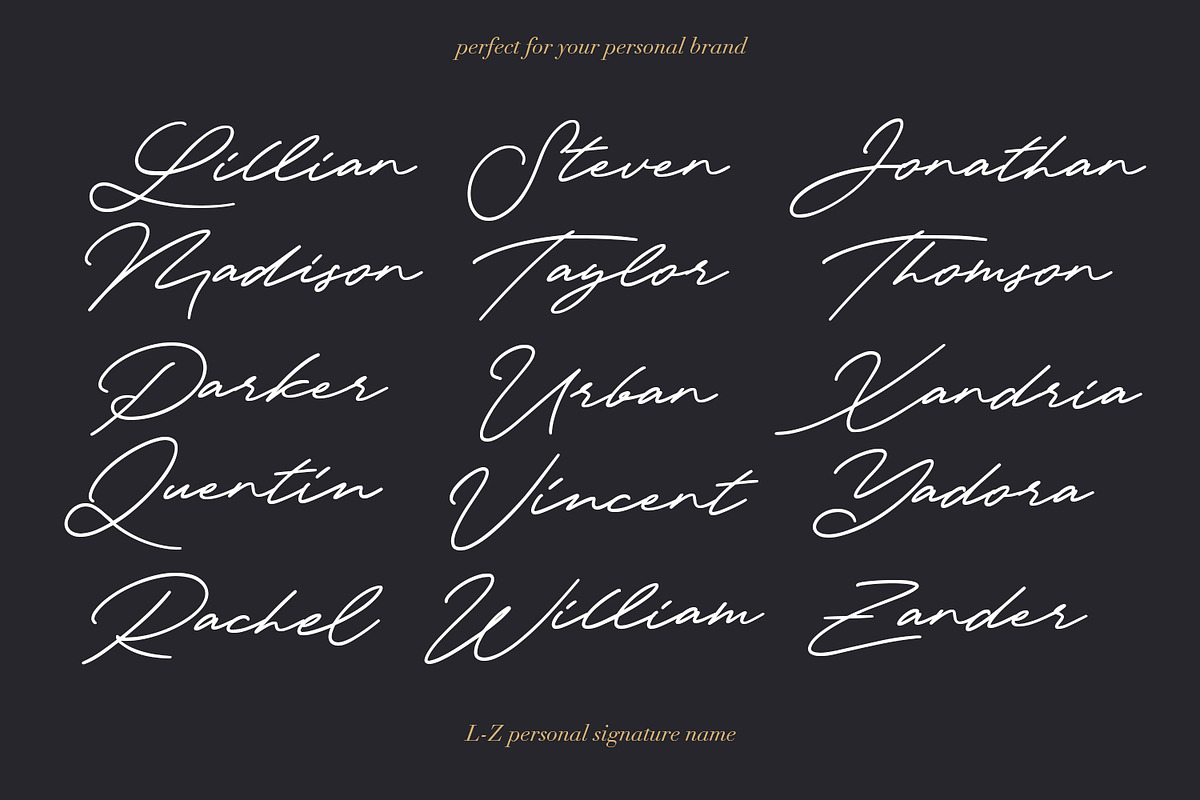 perfect for your personal brand
Lillian Steven Jonathan
Madison Taylor Thomson
Darker Urban Xandria
Quentin Vincent Yadora
Rachel William Zander
L-Z personal signature name